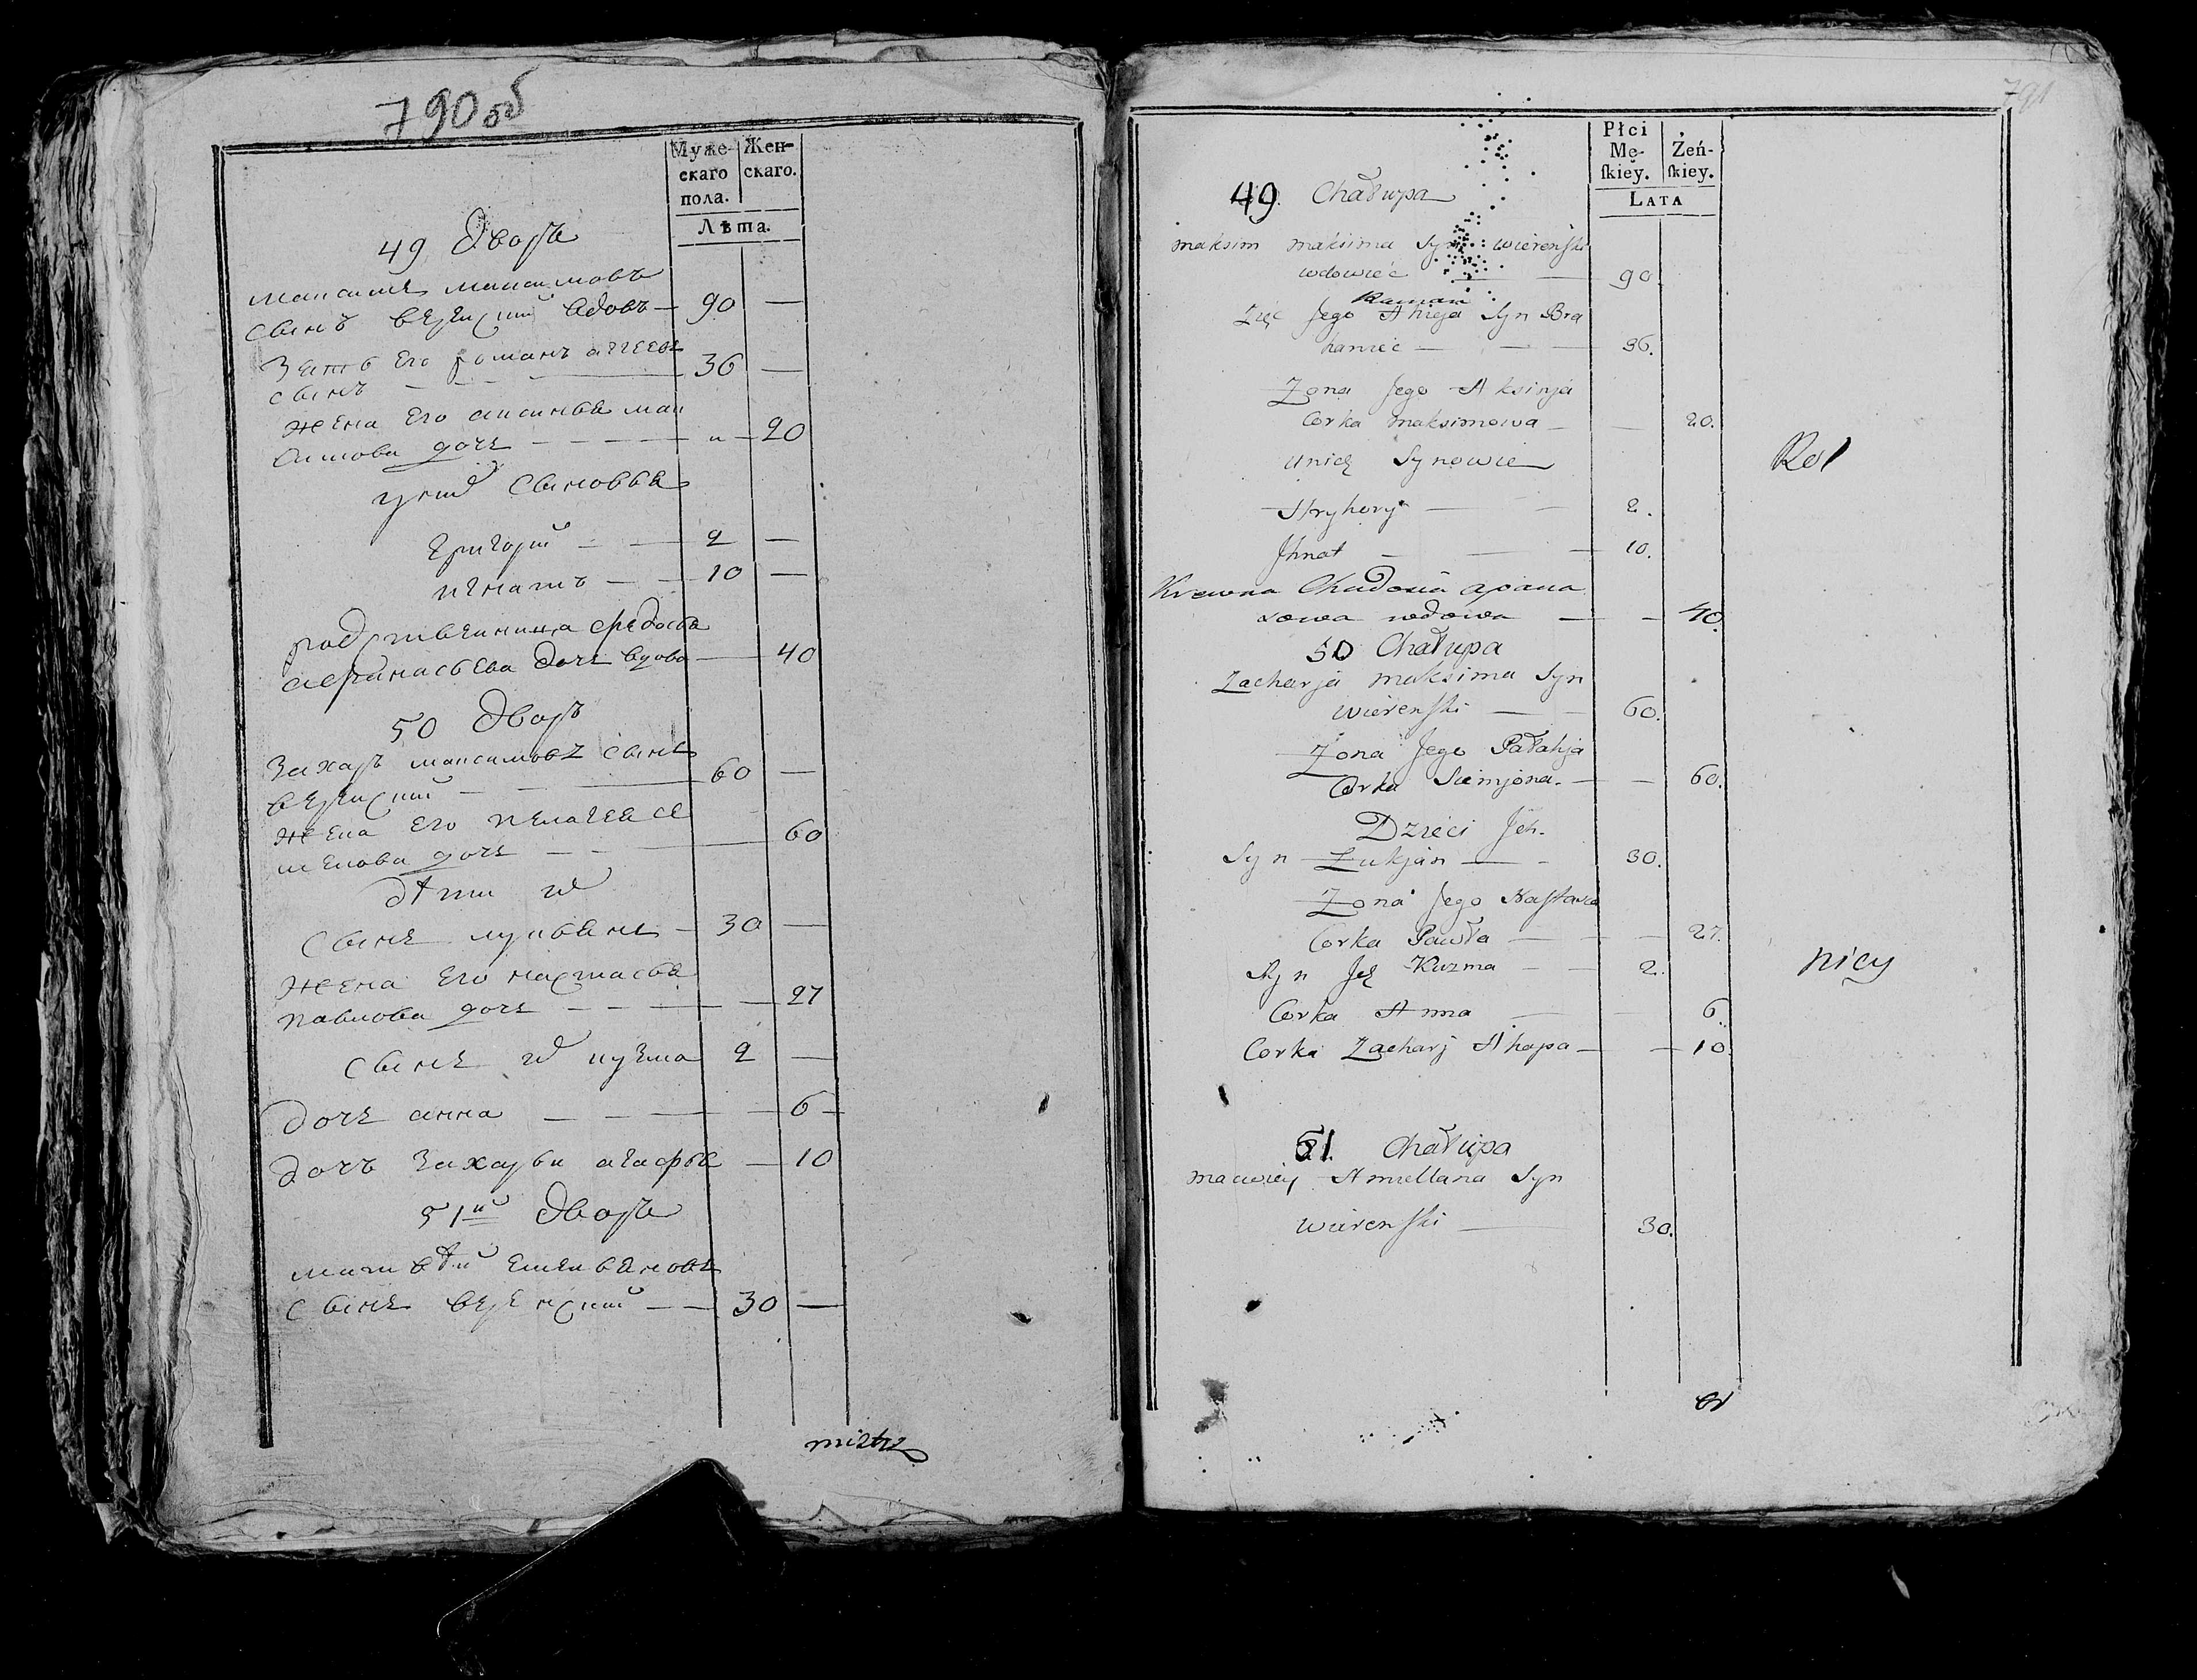 790 об
Муже- Жен-
скаго скаго.
пола.
Лѣта.
49 Дворъ
Максимъ Максимовъ
сынъ Веренский вдовъ — 90 —
Зять его Романъ Аггеевъ 36 —
сынъ — — —
жена его Аксинья Мак
симова дочь — — — " — 20
у них сыновья
Григорий — — 2 —
Игнатъ — — 10 —
родственница Федосья
Афанасьева дочь вдова — — 40
50 Дворъ
Захаръ Максимовъ сынъ
Веренский — — 60 —
жена его Пелагея Се
менова дочь — — — 60
дѣти их
сынъ Лукьянъ — 30 —
жена его Настасья
Павлова дочь — — — — 27
сынъ их Кузма 2 —
дочь Анна — — — — 6 —
дочъ Захарьи Агафья — 10
51й Дворъ
Матвѣй Емельяновъ
сынъ Веренский — — 30 —
791
Płci
Mę- Żeń-
ſkiey. ſkiey.
LATA
49. Chałupa
maksim maksima Syn wierenſki
wdowiec — 90
Raman
Zięć Jego Ahieja Syn Bra
haniec — — — 36.
Zona Jego Aksinja
Corka maksimowa — — 20.
unich Synowie
Hryhory — — 2.
Jhnat — — — 10.
Krewna Chudosia apana
sowa wdowa — — 40.
50 Chałupa
Zacharja maksima Syn
wierenſki — — 60.
Zona Jego Pałahja
Corka Siemjona. — — 60.
Dzieci Jch.
Syn Łukjan — - 30.
Zona Jego Naſtasia
Corka Pawła — — — 27.
Syn Jch Kuzma — — 2.
Corka Anna — — 6.
Corka Zacharj Ahapa — — 10.
51. Chałupa
maciviey Amiellana Syn
wierenſki — 30.
Rol
nicy